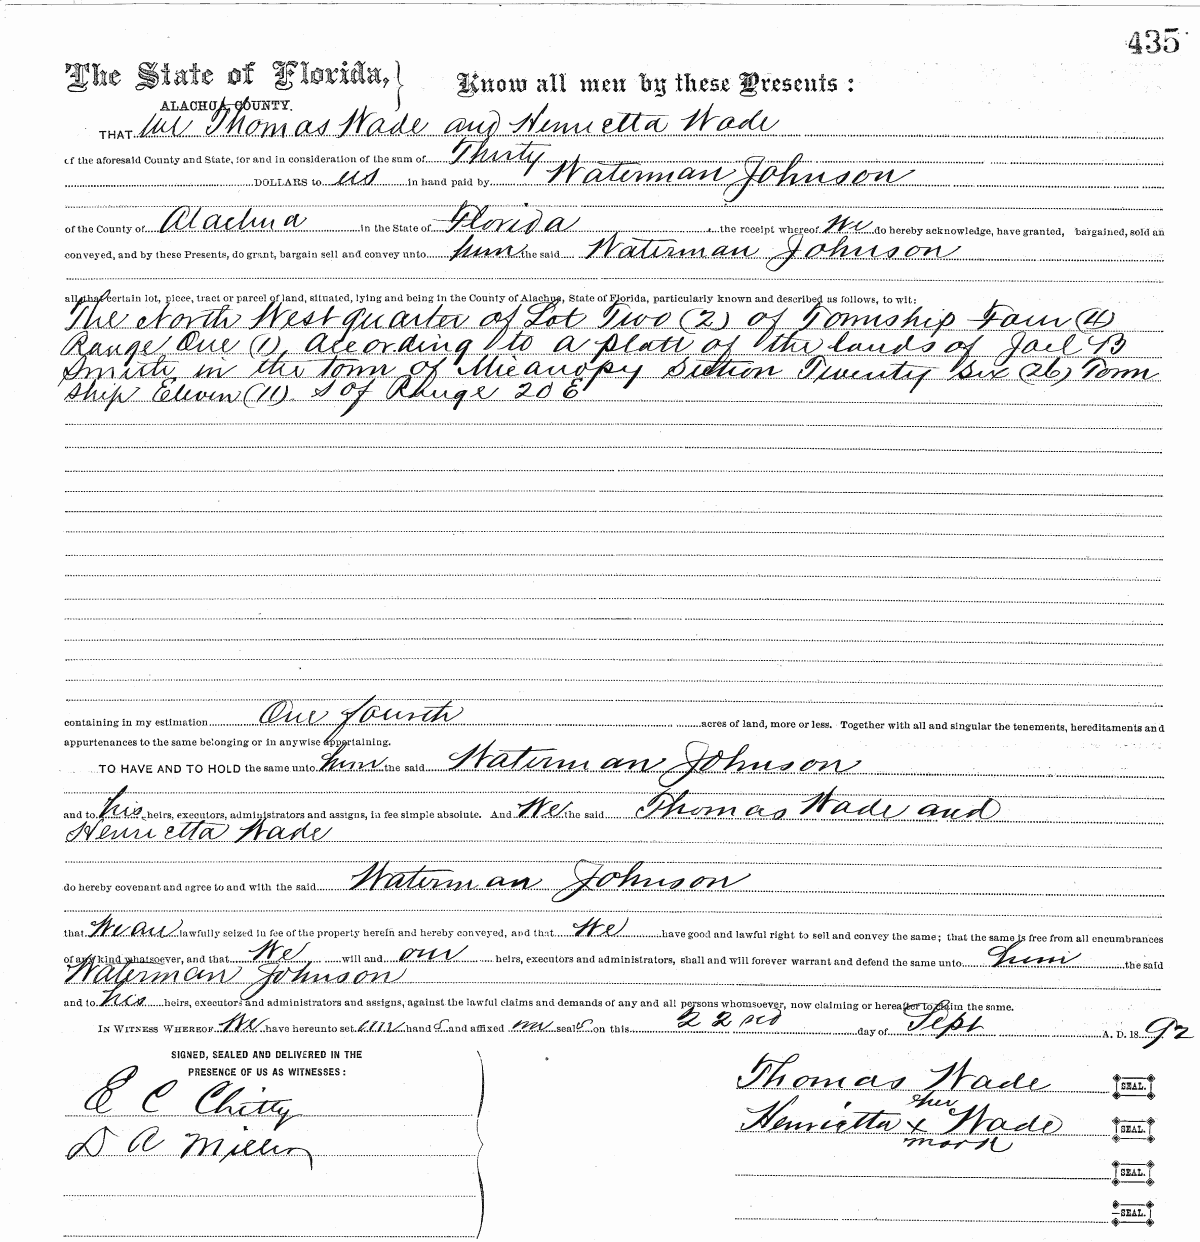 435
The State of Florida,} Know all men by these Presents:
ALACHUA COUNTY.
THAT We Thomas Wade and Henrietta Wade
of the aforesaid County and State, for and in consideration of the sum of Thirty
DOLLARS to us in hand paid by Waterman Johnson
of the County of Alachua in the State of Florida the receipt whereof We do hereby acknowledge, have granted, bargained, sold an
conveyed, and by these Presents, do grant, bargain sell and convey unto him the said Waterman Johnson
all that certain lot, piece, tract or parcel of land, situated, lying and being in the County of Alachua, State of Florida, particularly known and described as follows, to wit:
The North West quarter of Lot Two (2) of Township Four (4)
Range One (1) according to a platt of the lands of Joel B
Smith in the town of Micanopy Section Twenty Six (26) Town
ship Eleven (11) S of Range 20 E
containing in my estimation One fourth acres of land, more or less. Together with all and singular the tenements, hereditaments and
appurtenances to the same belonging or in anywise appertaining.
TO HAVE AND TO HOLD the same unto him the said Waterman Johnson
and to his heirs, executors, administrators and assigns, in fee simple absolute. And We the said Thomas Wade and
Henrietta Wade
do hereby covenant and agree to and with the said Waterman Johnson
that We are lawfully seized in fee of the property herein and hereby conveyed, and that We have good and lawful right to sell and convey the same; that the same is free from all encumbrances
of any kind whatsoever, and that We will and our heirs, executors and administrators, shall and will forever warrant and defend the same unto him the said
Waterman Johnson
and to his heirs, executors and administrators and assigns, against the lawful claims and demands of any and all persons whomsoever, now claiming or hereafter to claim the same.
IN WITNESS WHEREOF We have hereunto set our hands and affixed our seals on this 22nd day of Sept A. D. 1892
SIGNED, SEALED AND DELIVERED IN THE
PRESENCE OF US AS WITNESSES:
E C Chitty
D A Miller
Thomas Wade SEAL.
her
Henrietta x Wade SEAL.
mark
SEAL.
SEAL.